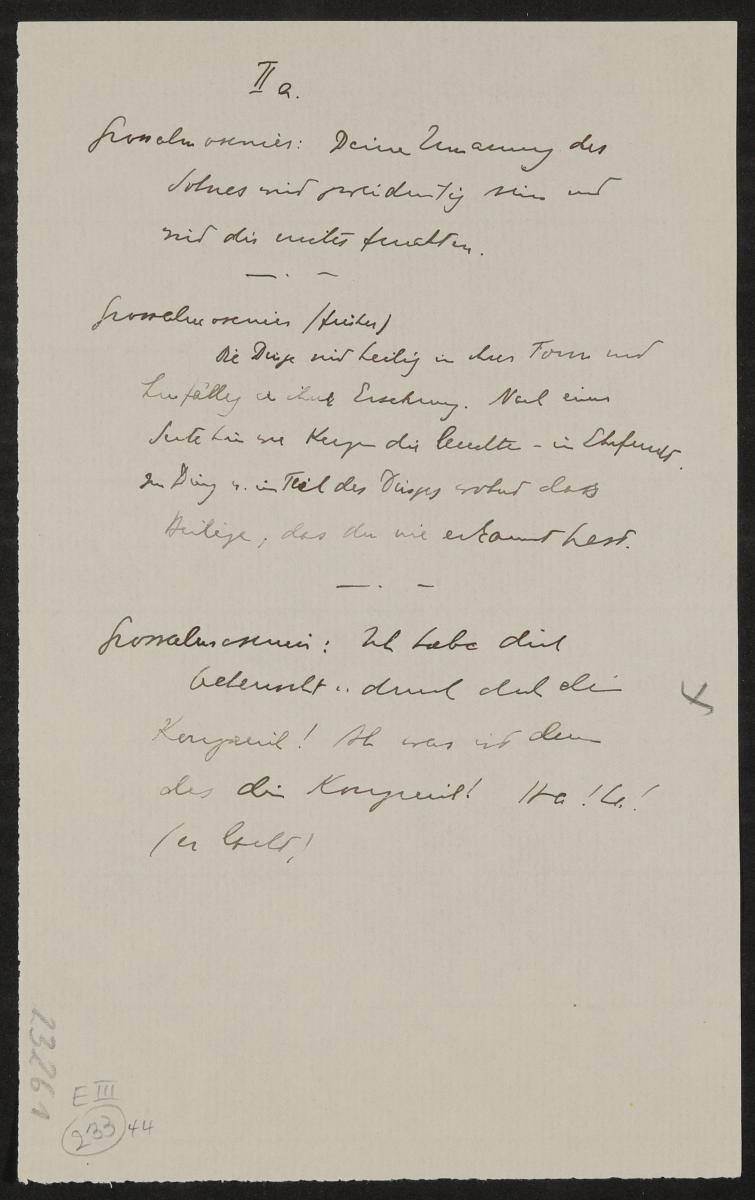 II a.
Grossalmosenier: Deine Umarmung des
Sohnes wird zweideutig sein und
wird dir
Grossalmosenier (früher)
Die Dinge sind heilig in ihrer Form und
hinfällig in ihrer Erscheinung. Nach einer
Seite hin wie Kerzen die leuchten – in Ehrfurcht.
Im Ding u. im Teil des Dinges wohnt das
Heilige, das du nie erkannt hast.
Grossalmosenier: Ich habe dich
beherrscht u. durch dich dein
Königreich! Ah was ist denn
das dein Königreich! Ha! ha!
(er lacht)
23261
E III
233 44